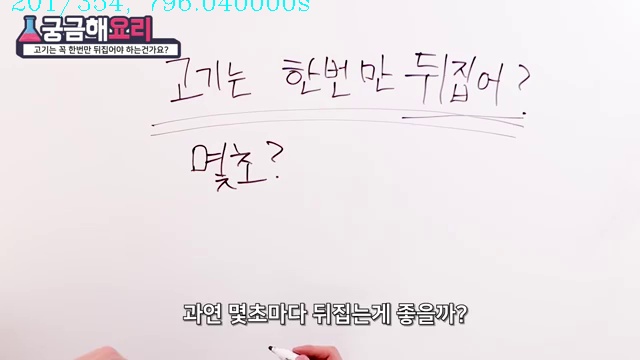 201/354, 796.040000s
궁금해요리
고기는 꼭 한번만 뒤집어야 하는건가요?
고기는 한번만 뒤집어?
몇초?
과연 몇초마다 뒤집는게 좋을까?